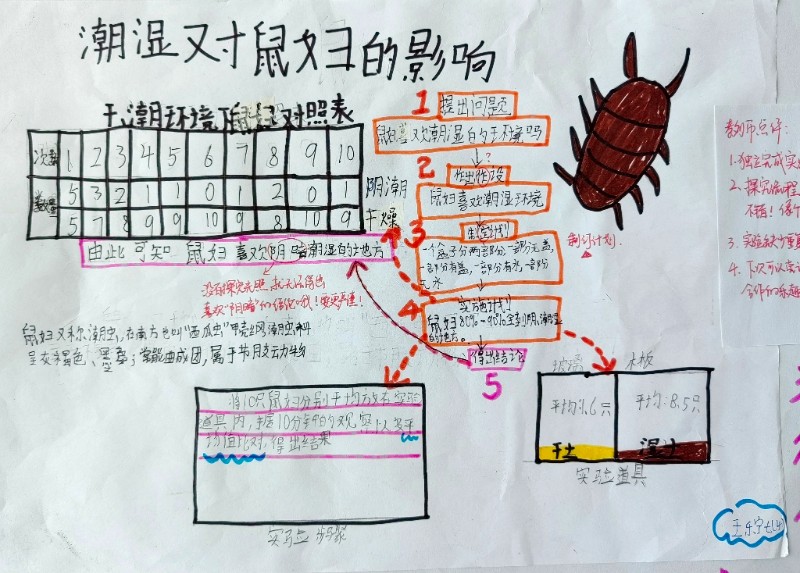 潮湿对鼠妇的影响
干、潮环境下鼠妇对照表
次数 1 2 3 4 5 6 7 8 9 10
数量 5 3 2 1 1 0 1 2 0 1 阴潮
5 7 8 9 9 10 9 8 10 9 干燥
由此可知 鼠妇喜欢阴暗潮湿的土地方
没有探究光照
喜欢"阴暗"的
鼠妇又称潮虫,在南方也叫"西瓜虫"甲壳纲潮虫科
呈灰褐色、黑蓝;常能曲成团,属于节肢动物
1
提出问题
鼠妇喜欢潮湿的环境吗
?
2
作出假设
鼠妇喜欢潮湿环境
3
制定计划
一个盒子分两部分,一部分无盖,
一部分有盖,一部分有水,一部分
无水
制订计划.
4
实施计划
鼠妇80%-90%全到阴潮湿
的地方。
得出结论
5
将10只鼠妇分别平均放在实验
道具内,每隔10分钟的观察,以多平
均值比对,得出结果
实验步骤
玻璃 木板
平均:1.6只 平均:8.5只
干土 湿土
实验道具
教师点评:
1.独立完成实
2.探究
不错!
3.实验
4.下次可以